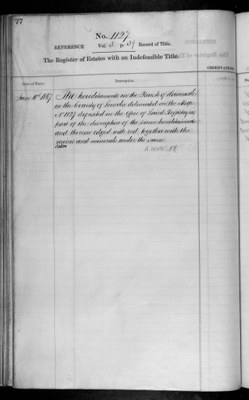 77
No. 1127
REFERENCE Vol. 3 p 39 Record of Title.
The Register of Estates with an Indefeasible Title.
Date of Entry. Description. OBSERVATIONS
June 11th 1867 The hereditaments in the Parish of
in the County of Lincoln delineated on the Map
No 1127 deposited in the Office of Land Registry as
part of the description of the same hereditaments
and thereon edged with red together with the
mines and minerals under the same